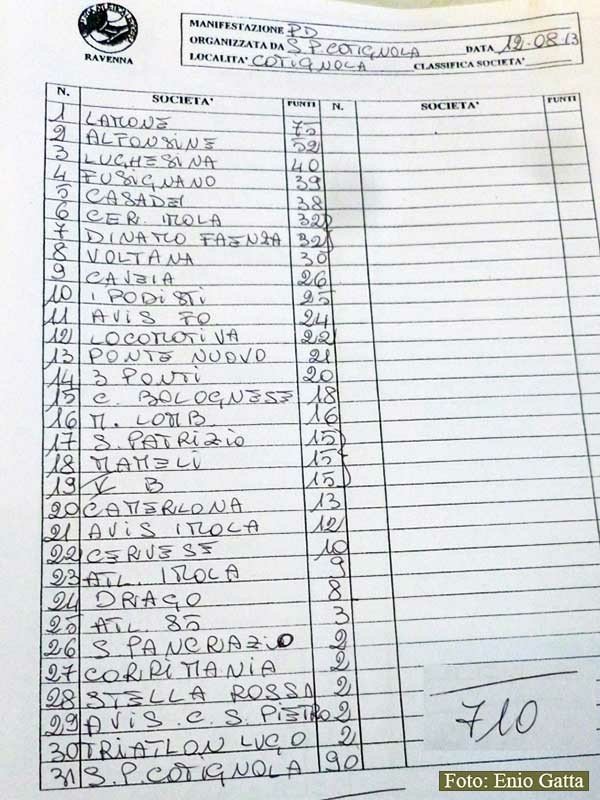 RAVENNA
MANIFESTAZIONE PD
ORGANIZZATA DA S.P.COTIGNOLA DATA 12-08-13
LOCALITA' COTIGNOLA CLASSIFICA SOCIETA'
N. SOCIETA' PUNTI N. SOCIETA' PUNTI
1 LAMONE 75
2 ALFONSINE 52
3 LUGHESINA 40
4 FUSIGNANO 39
5 CASADEI 38
6 CER. IMOLA 32
7 DINAMO FAENZA 32
8 VOLTANA 30
9 CAVEIA 26
10 I PODISTI 25
11 AVIS FO 24
12 LOCOMOTIVA 22
13 PONTE NUOVO 21
14 3 PONTI 20
15 C. BOLOGNESE 18
16 M. LOMB 16
17 S. PATRIZIO 15
18 MAMELI 15
19 V B 15
20 CAMERLONA 13
21 AVIS IMOLA 12
22 CERVESE 10
23 ATL. IMOLA 9
24 DRAGO 8
25 ATL. 85 3
26 S PANCRAZIO 2
27 CORRIMANIA 2
28 STELLA ROSSA 2
29 AVIS C.S. PIETRO 2
30 TRIATLON LUGO 2
31 S.P.COTIGNOLA 90
710
Foto: Enio Gatta